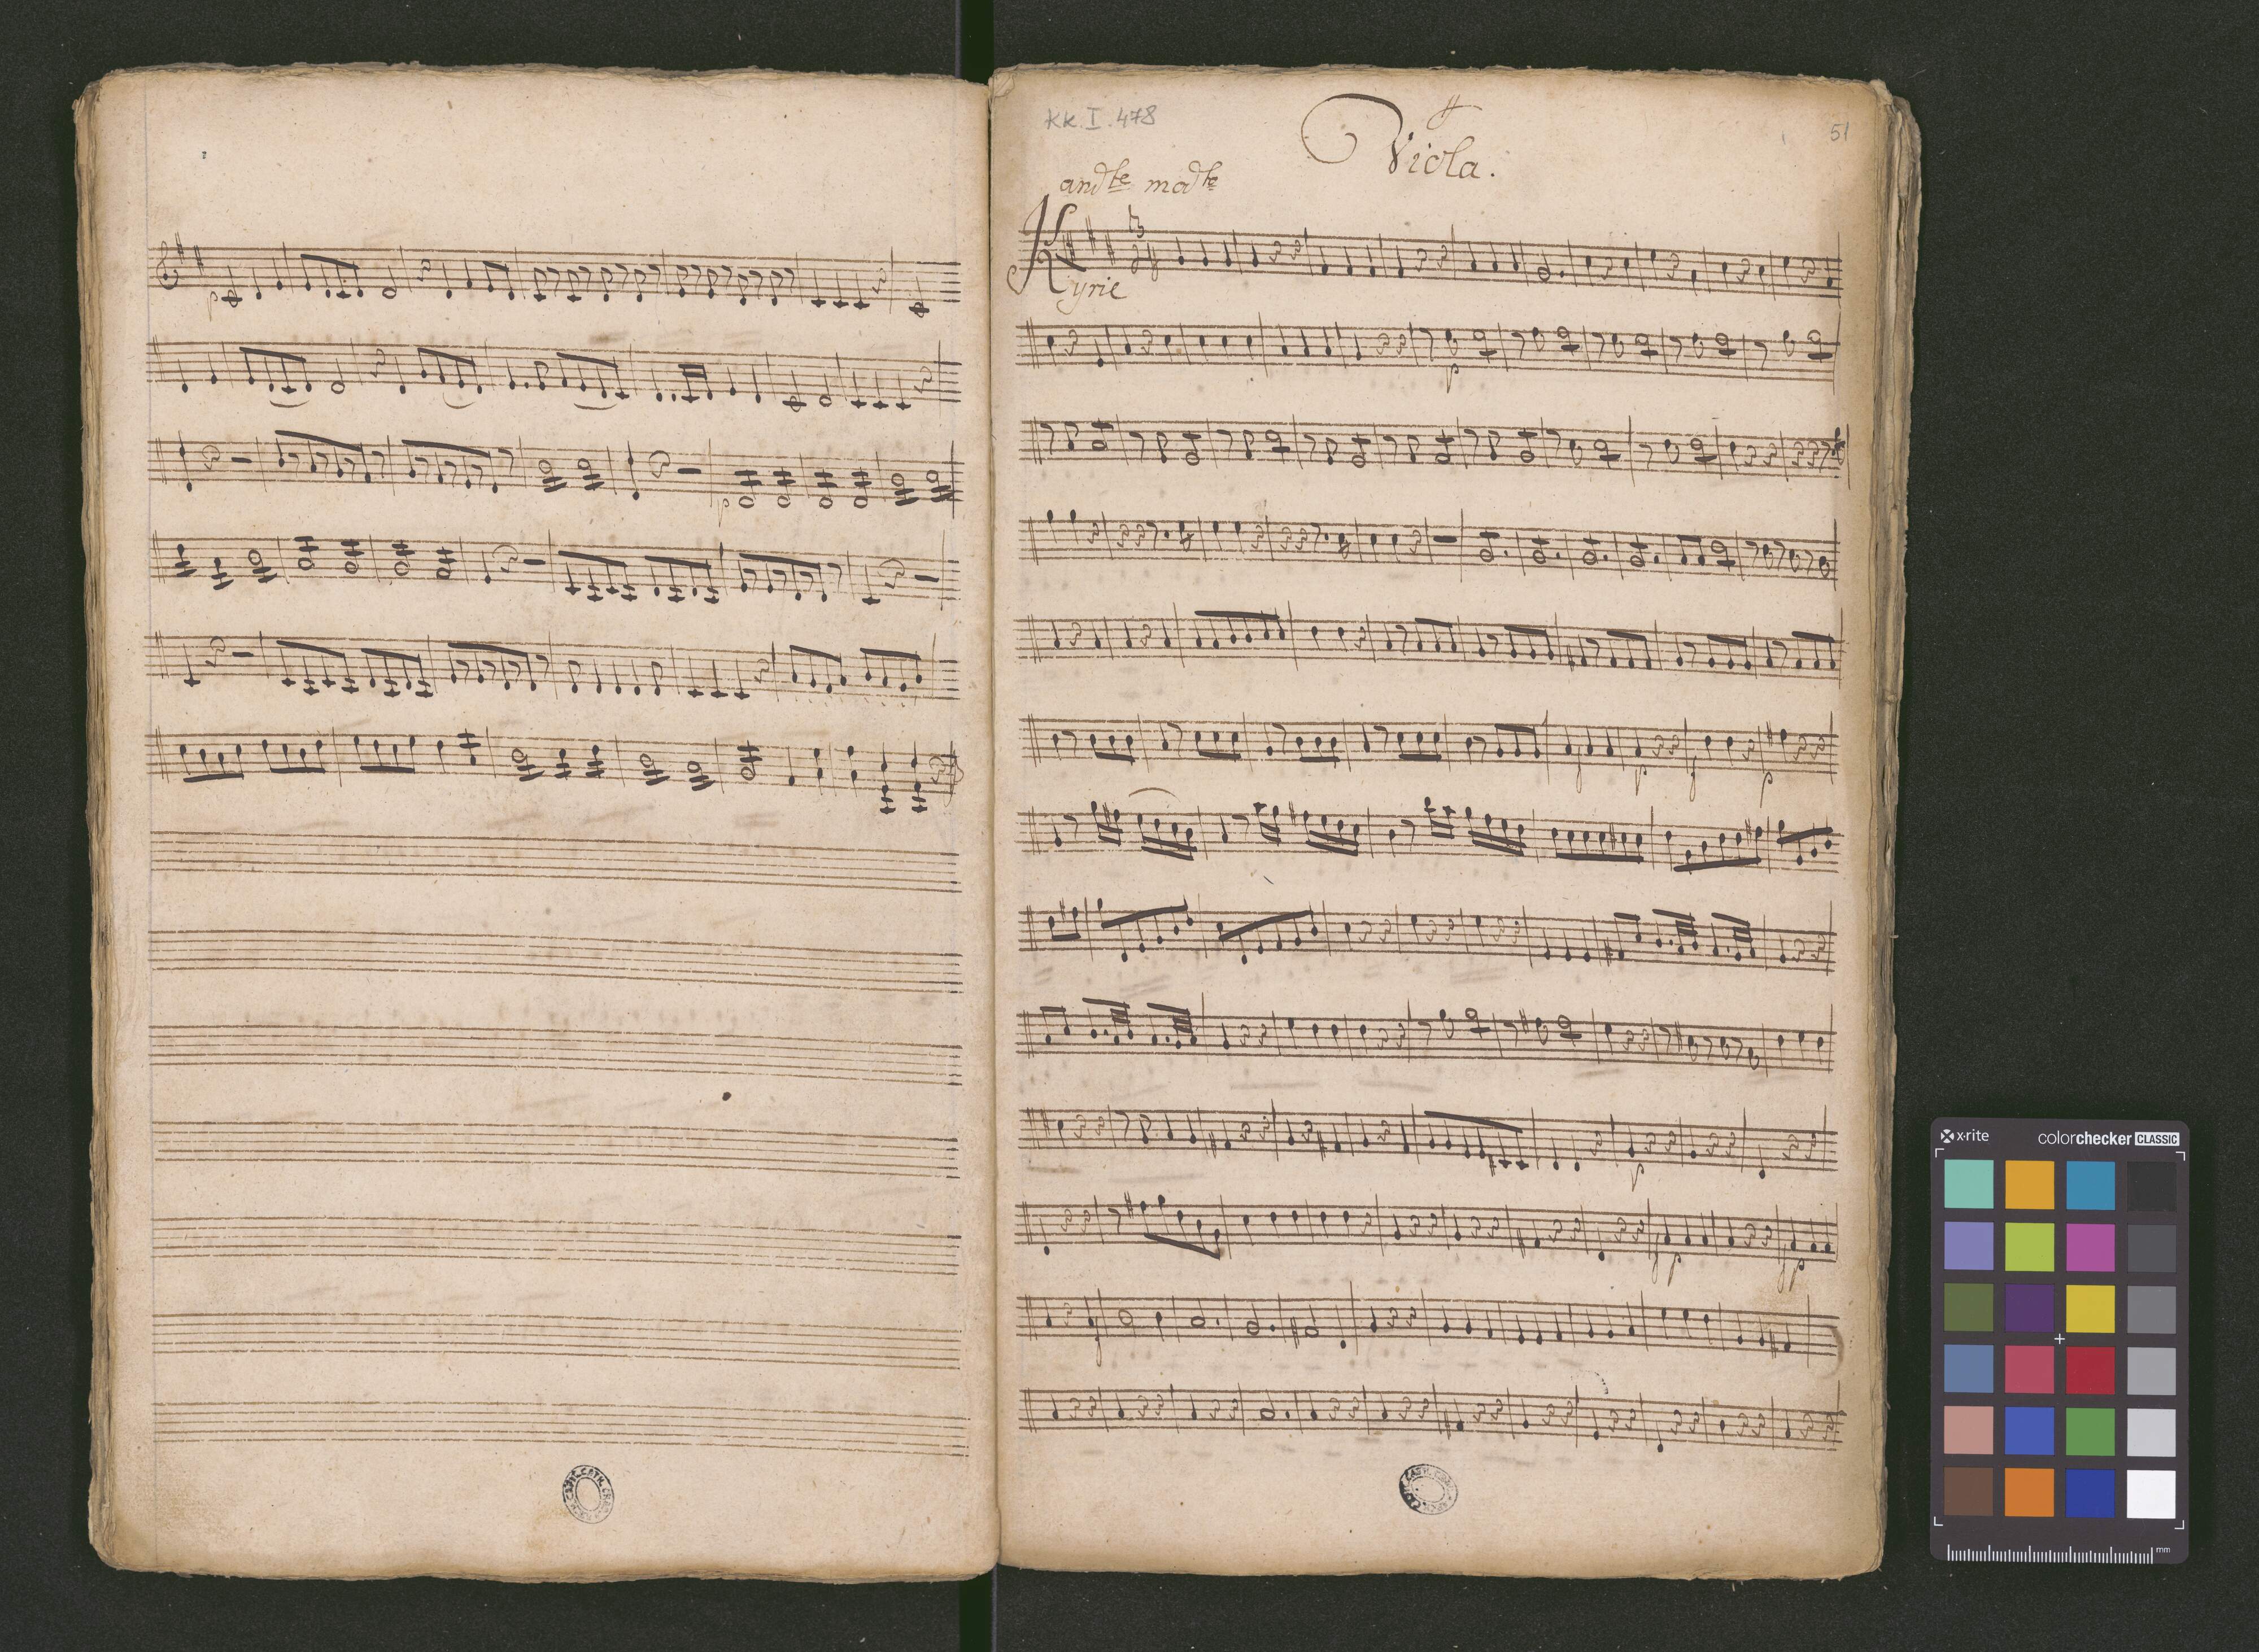 KK. I. 478
Viola.
51
andte modte
Kyrie
p
p
p
p
p
p
p
p
x·rite
colorchecker CLASSIC
mm